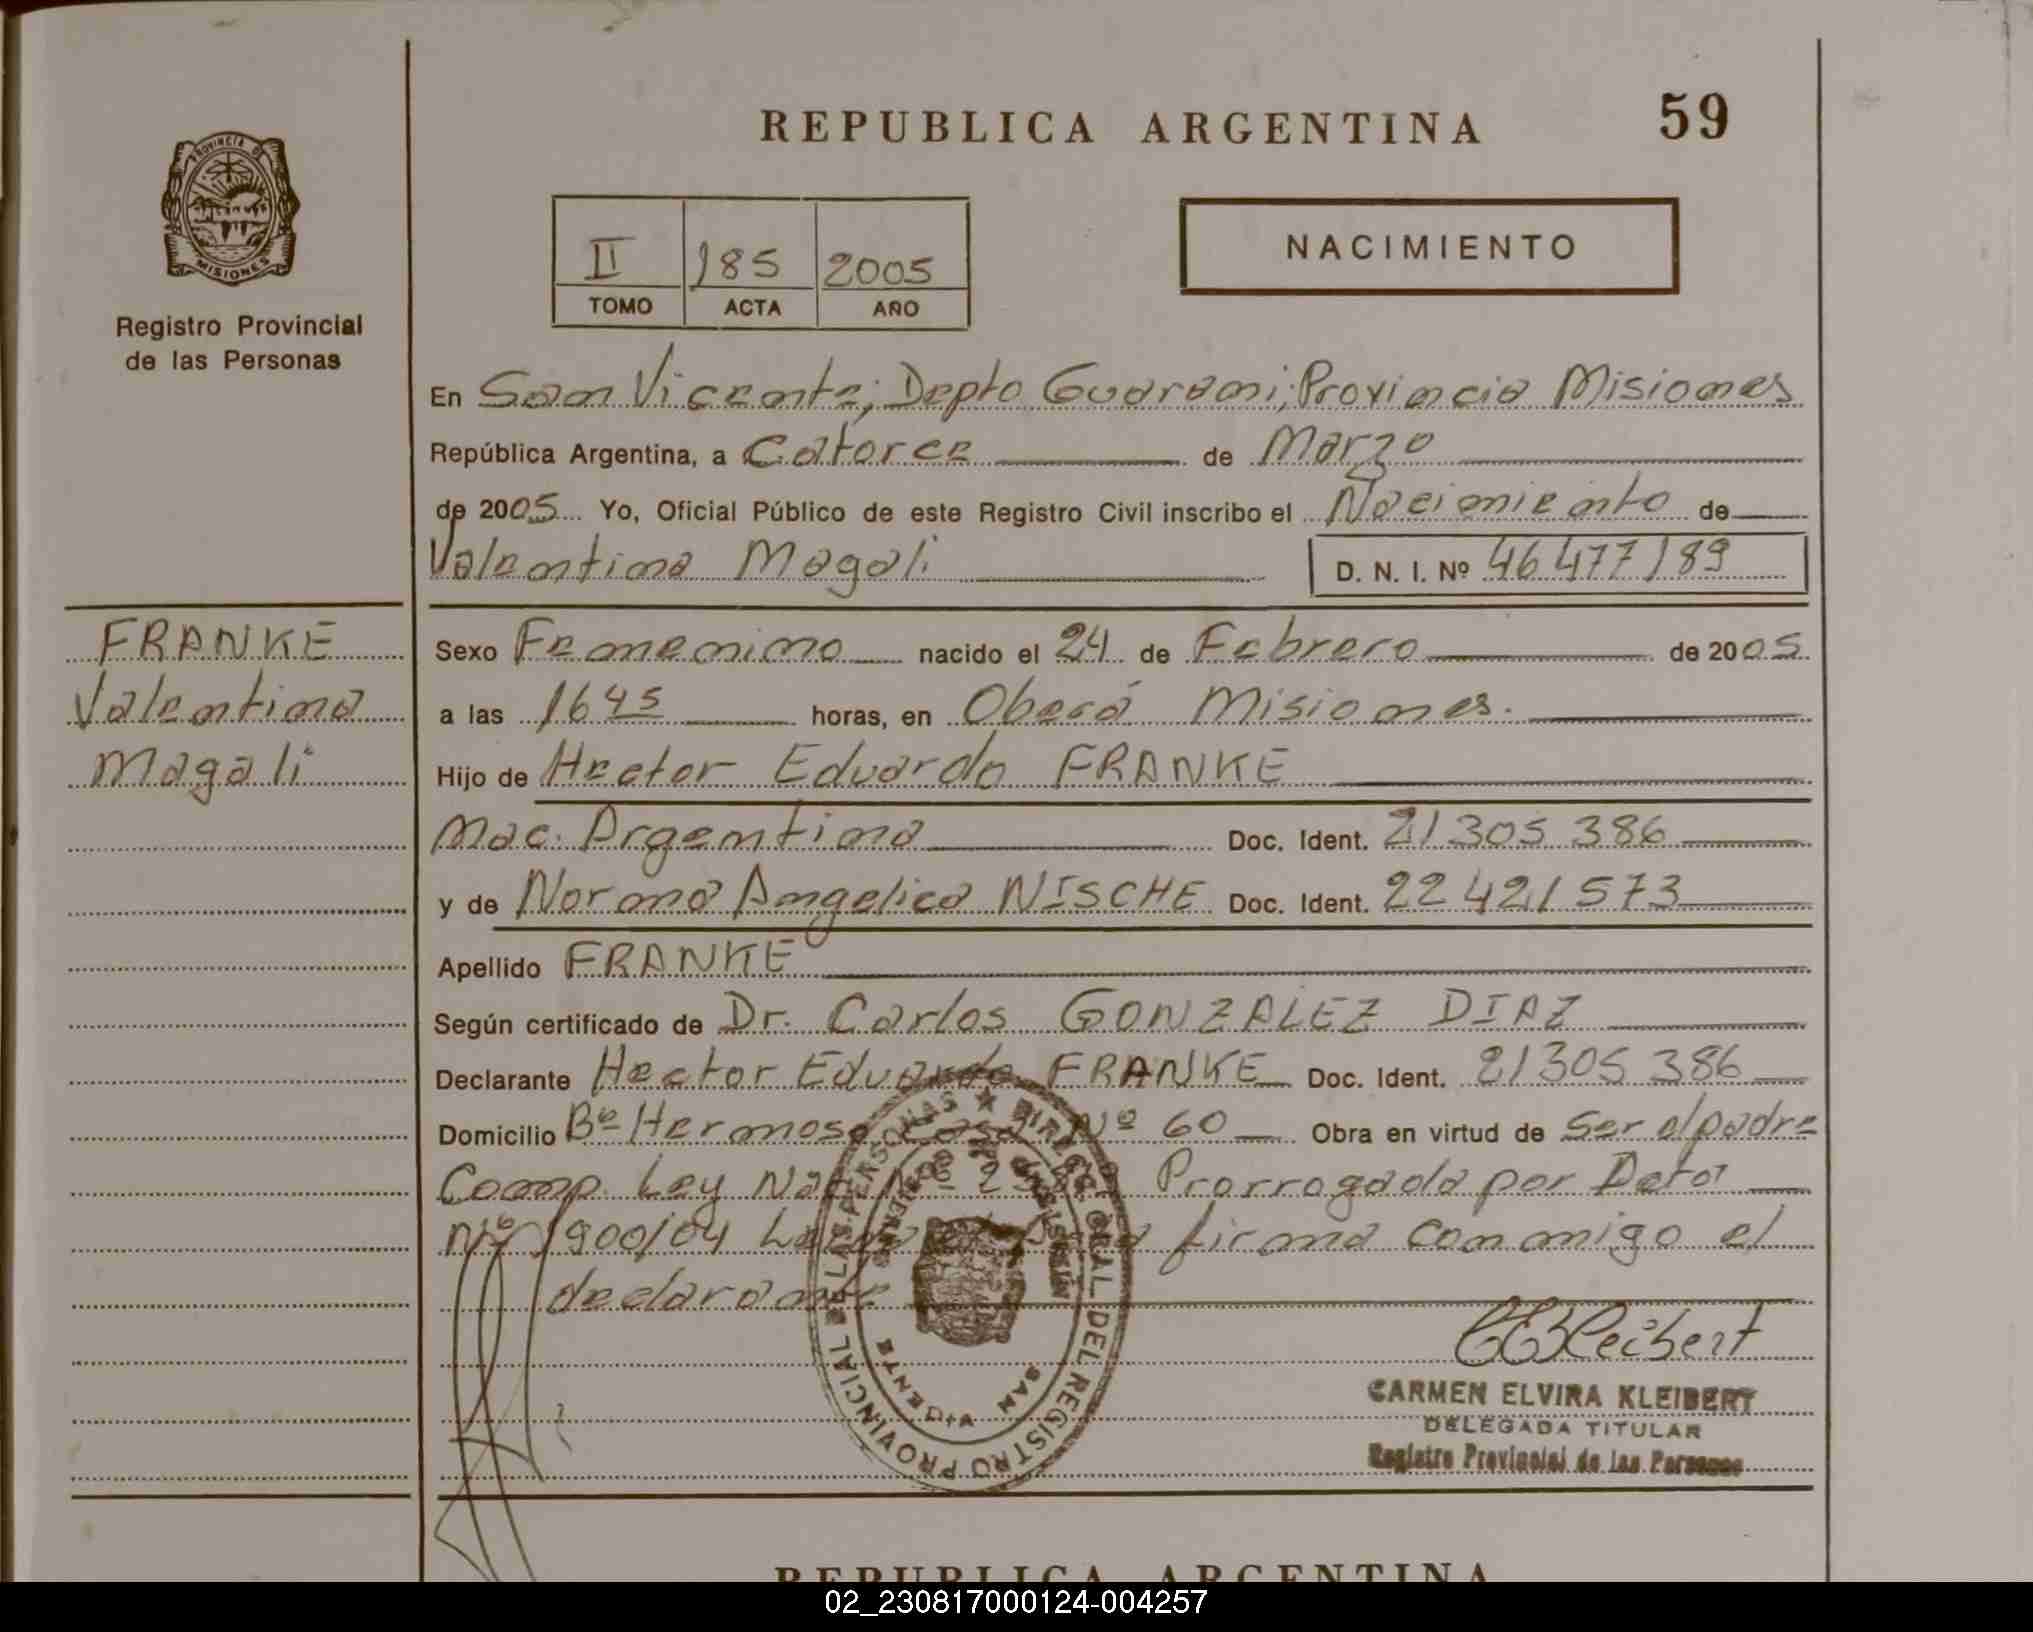 REPUBLICA ARGENTINA
59
PROVINCIA DE
MISIONES
Registro Provincial
de las Personas
II 185 2005
TOMO ACTA AÑO
NACIMIENTO
En San Vicente; Depto Guarani; Provincia Misiones
República Argentina, a Catorce de Marzo
de 2005 Yo, Oficial Público de este Registro Civil inscribo el Nacimiento de
Valentina Magali D. N. I. Nº 46 477 189
FRANKE
Valentina
Magali
Sexo Femenino nacido el 24 de Febrero de 2005
a las 16 45 horas, en Oberá Misiones.
Hijo de Hector Eduardo FRANKE
Nac. Argentina Doc. Ident. 21 305 386
y de Norma Angelica NISCHE Doc. Ident. 22 421 573
Apellido FRANKE
Según certificado de Dr. Carlos GONZALEZ DIAZ
Declarante Hector Eduardo FRANKE Doc. Ident. 21 305 386
Domicilio Bº Hermoso Casa Nº 60 Obra en virtud de Ser el padre
Comp. Ley Nac Nº Prorrogada por Dcto
Nº 1900/04 firma conmigo el
declarante
DIREC. GRAL. DEL REGISTRO PROVINCIAL DE LAS PERSONAS
SAN VICENTE
CEKleibert
CARMEN ELVIRA KLEIBERT
DELEGADA TITULAR
Registro Provincial de las Personas
REPUBLICA ARGENTINA
02_230817000124-004257